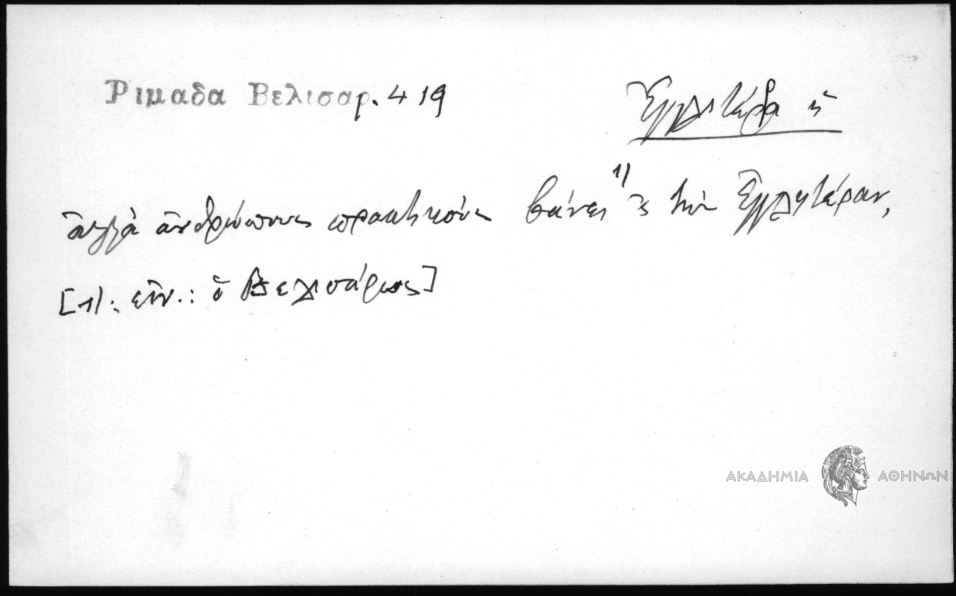 Ριμαδα Βελισαρ. 419
Ἐγγλιτέρα ἡ
ἀλλὰ ἀνθρώπους πρακτικοὺς βάνει ¹⁾ ς τὴν Ἐγγλητέραν,
[1): εἰν.: ὁ Βελισάριος]
ΑΚΑΔΗΜΙΑ ΑΘΗΝΩΝ